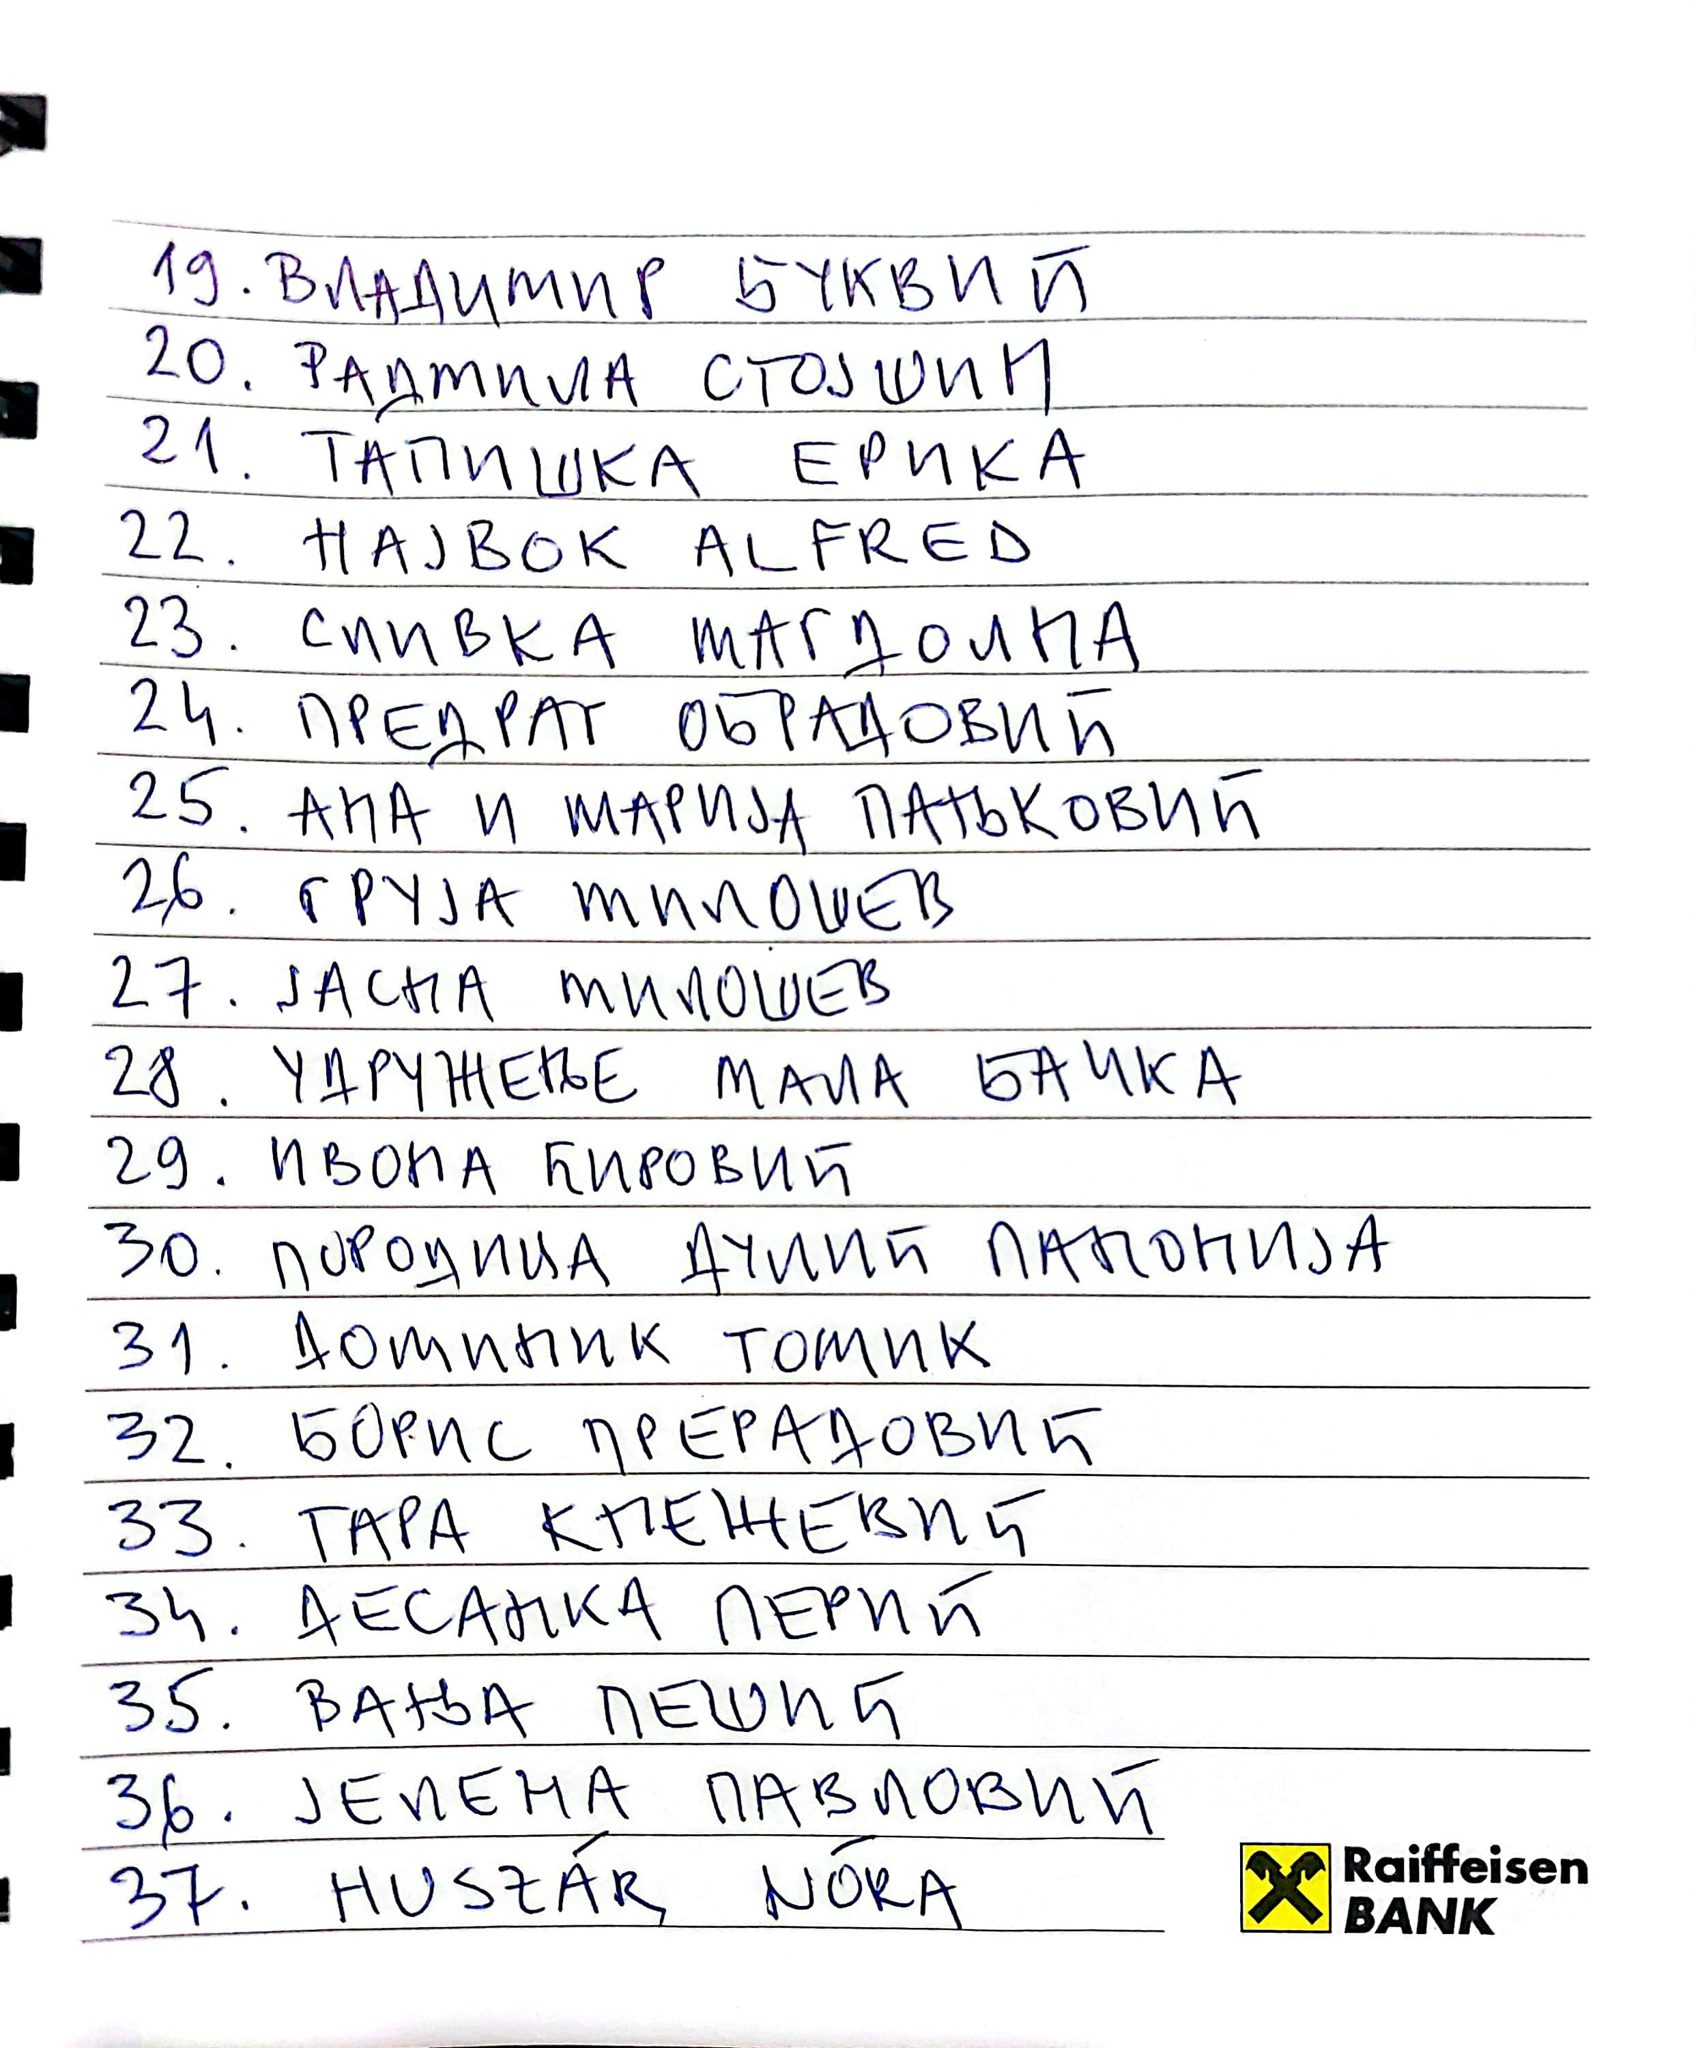 19. ВЛАДИМИР БУКВИЋ
20. РАДМИЛА СТОЈШИН
21. ТАПИШКА ЕРИКА
22. НАЈВОК ALFRED
23. СЛИВКА МАГДОЛНА
24. ПРЕДРАГ ОБРАДОВИЋ
25. АНА И МАРИЈА ПАЊКОВИЋ
26. ГРУЈА МИЛОШЕВ
27. ЈАСНА МИЛОШЕВ
28. УДРУЖЕЊЕ МАЛА БАЧКА
29. ИВОНА ЋИРОВИЋ
30. ПОРОДИЦА ДУЛИЋ ПАНОНИЈА
31. ДОМИНИК ТОМИК
32. БОРИС ПРЕРАДОВИЋ
33. ТАРА КНЕЖЕВИЋ
34. ДЕСАНКА ПЕРИЋ
35. ВАЊА ПЕШИЋ
36. ЈЕЛЕНА ПАВЛОВИЋ
37. HUSZÁR NÓRA
Raiffeisen
BANK